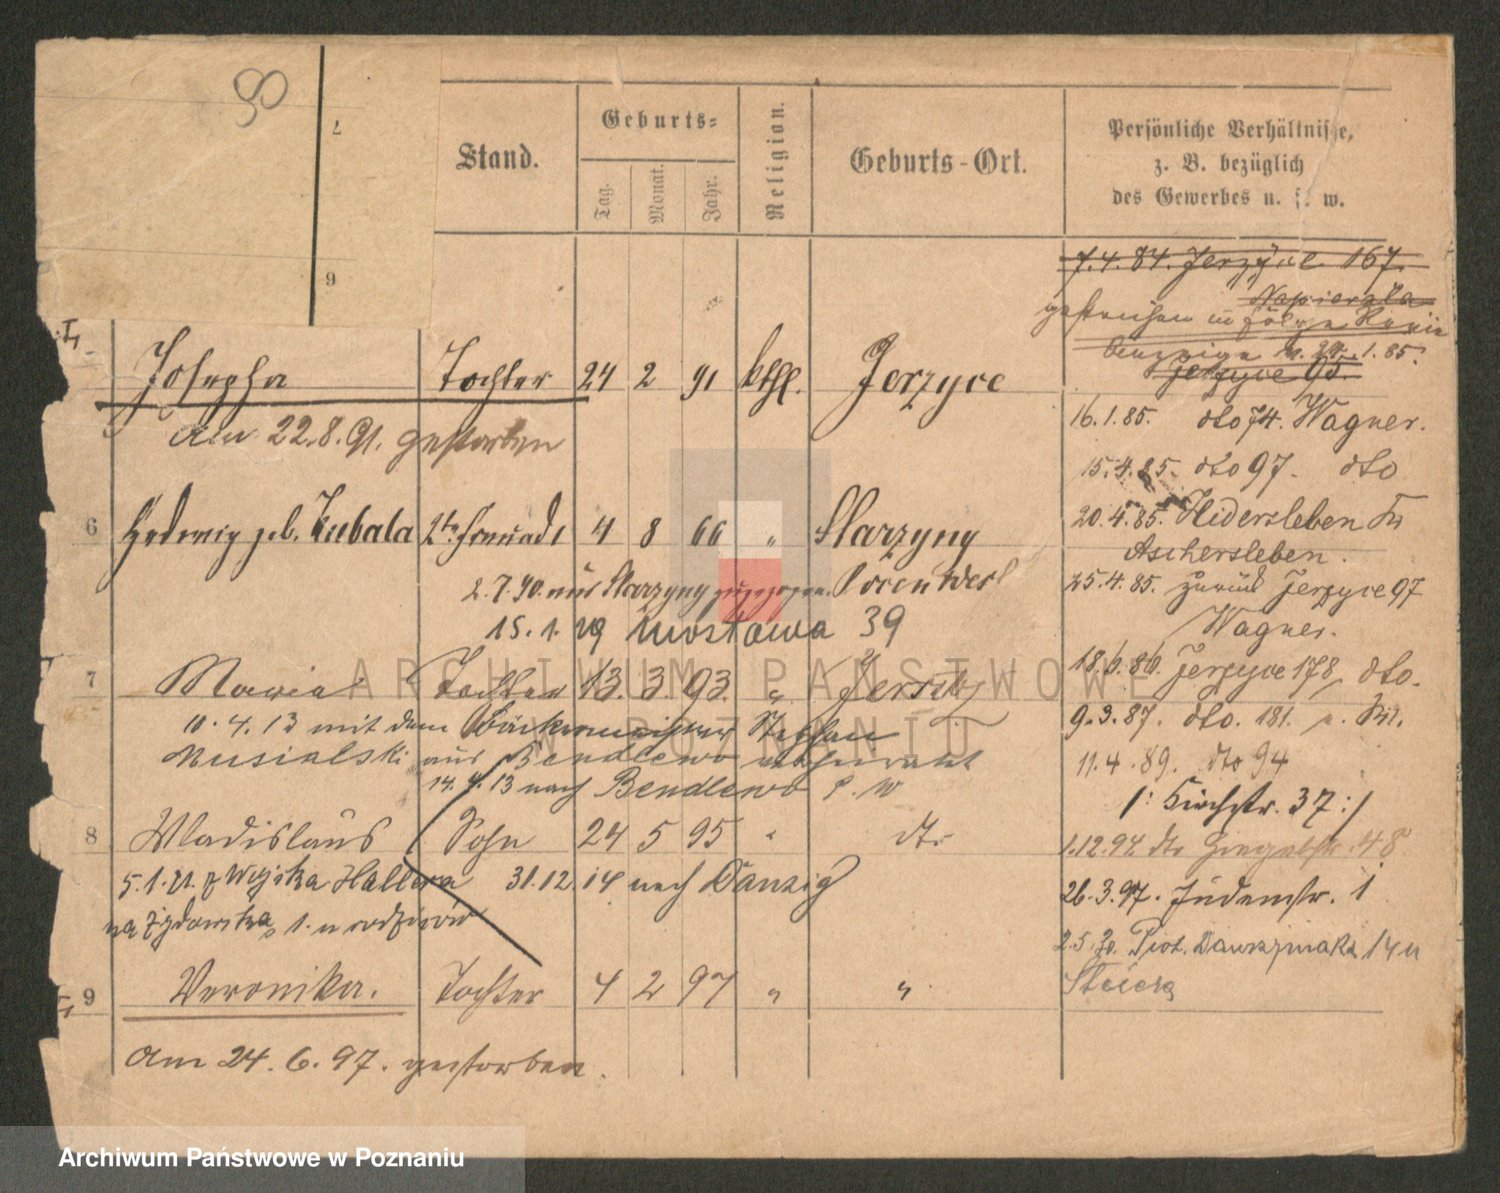 90
7
6
Stand.
Geburts=
Tag.
Monat.
Jahr.
Religion.
Geburts-Ort.
Persönliche Verhältnisse,
z. B. bezüglich
des Gewerbes u. s. w.
Josepha Tochter 24 2 91 kthl. Jerzyce
am 22.8.91. gestorben
6 Hedwig geb. Kubala 2te Frau 4 8 66 " Skarzyny
2.7.90. aus Skarzyny zugezogen.
15.1.19 Mostowa 39
7 Maria Tochter 13. 3 93. " Jersitz
11.4.13 mit dem Bäckermeister Stephan
Musialski aus Bendlewo verheiratet
14.4.13 nach Bendlewo P. W
8 Wladislaus Sohn 24 5 95 " dto
5.1.21. z Wojska Hallera 31.12.14 nach Danzig
na Żydowska 1. u rodziców
9 Veronika. Tochter 4 2 97 " "
am 24.6.97. gestorben.
7.4.84. Jerzyce 167.
Napierala
gestrichen in Folge Revis
Anzeige v. 24.1.85.
Jerzyce 95.
16.1.85. dto 74. Wagner.
15.4.85. dto 97. dto
20.4.85. Hidersleben Kr
Aschersleben.
25.4.85. zurück Jerzyce 97
Wagner.
18.6.86. Jerzyce 178, dto.
9.3.87. dto. 181.
11.4.89. dto 94
/: Kirchstr. 37 :/
1.12.94 dto 48
26.3.97. Judenstr. 1
2.5.20. Piotr. 14 u
ARCHIWUM PAŃSTWOWE
W POZNANIU
Archiwum Państwowe w Poznaniu